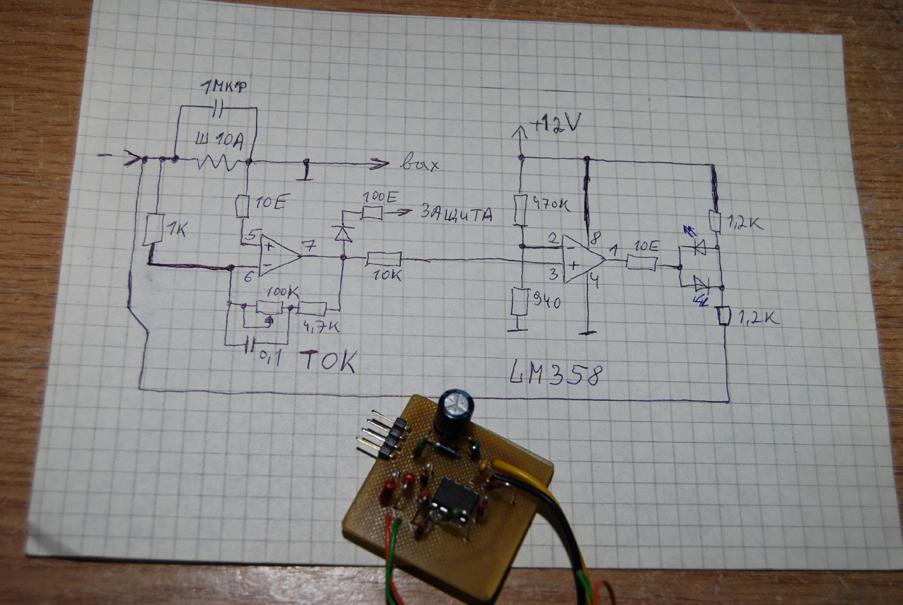 1МКФ
Ш 10А
+12V
вах
10Е
100Е
ЗАЩИТА
470К
1,2К
1К
5
+
7
-
6
10К
2
-
8
3
+
1
4
10Е
100К
4,7К
940
1,2К
0,1
ТОК
LM358